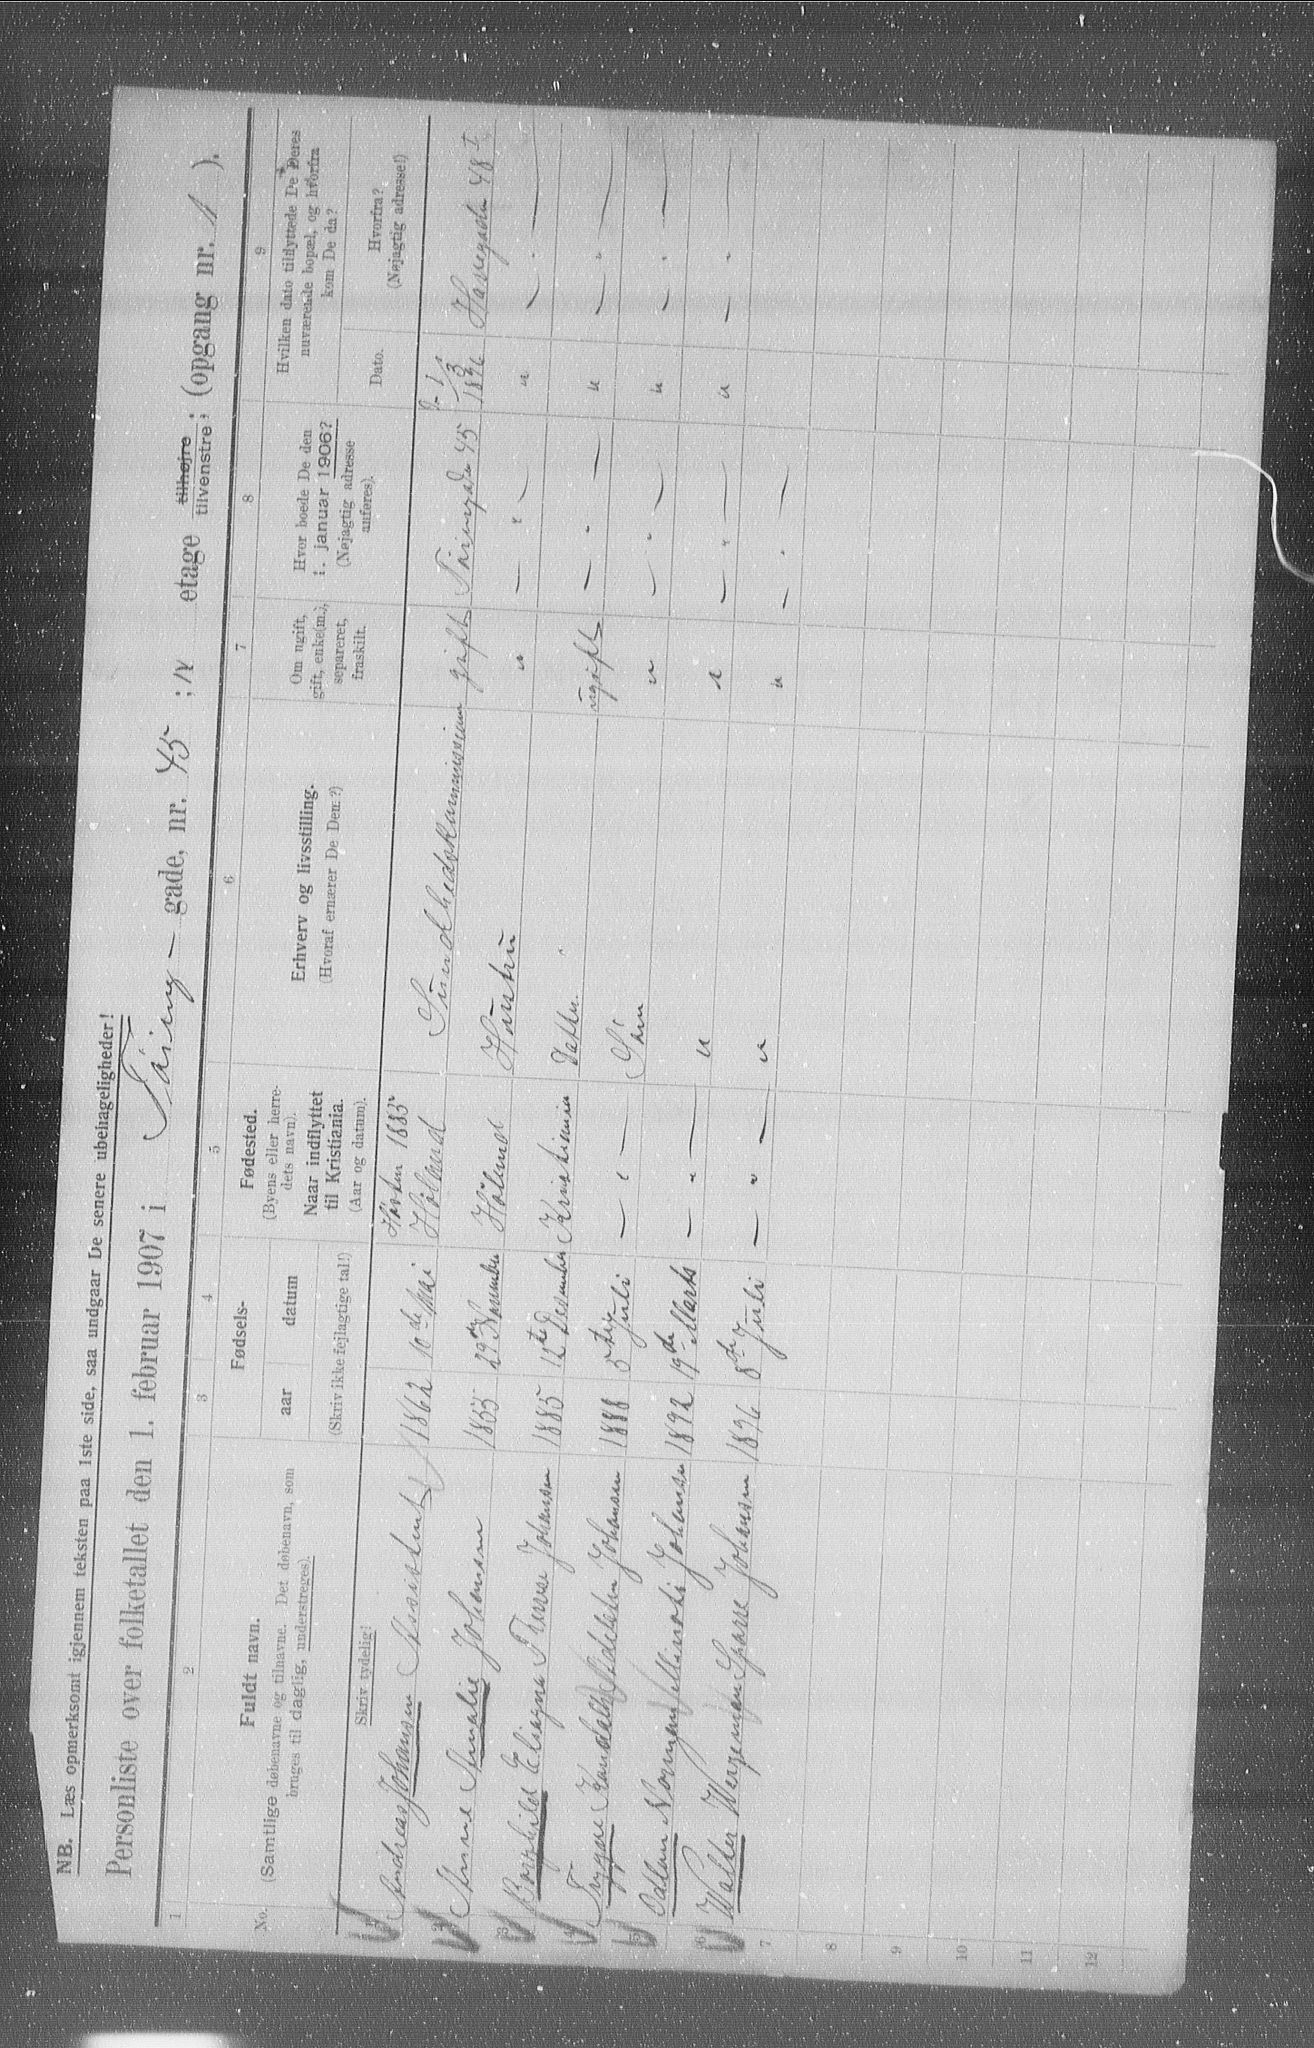 NB. Læs opmerksomt igjennem teksten paa 1ste side, saa undgaar De senere ubehageligheder!
Personliste over folketallet den 1. februar 1907 i Tøieng — gade, nr. 45 ; IV etage tilhøjre tilvenstre ; (opgang nr. ).
1 2 3 4 5 6 7 8 9
No. Fuldt navn. (Samtlige døbenavne og tilnavne. Det døbenavn, som bruges til daglig, understreges). Skriv tydelig!
Fødsels- aar datum (Skriv ikke fejlagtige tal!)
Fødested. (Byens eller herredets navn). Naar indflyttet til Kristiania. (Aar og datum).
Erhverv og livsstilling. (Hvoraf ernærer De Dem?)
Om ugift, gift, enke(m.), separeret, fraskilt.
Hvor boede De den 1. januar 1906? (Nøjagtig adresse anføres).
Hvilken dato tilflyttede De Deres nuværende bopæl, og hvorfra kom De da? Dato. Hvorfra? (Nøjagtig adresse!)
1 Andreas Johansen Assistent 1862 10de Mai Høsten 1883 Høland Sundhedskommission gift Tøiengade 45 1/3 1896 48 I
2 Anne Amalie Johansen 1855 29de November Høland Hustru " — " — " — " —
3 Borghild Johansen 1885 12te Desember Kristiania Datter ugift — " — " — " —
4 Trygve Johansen 1888 5te Juli — " — Søn " — " — " — " —
5 Johansen 1892 19de Marts — " — " " — " — " — " —
6 Walter Sparre Johansen 1896 8de Juli — " — " " — " —
7
8
9
10
11
12